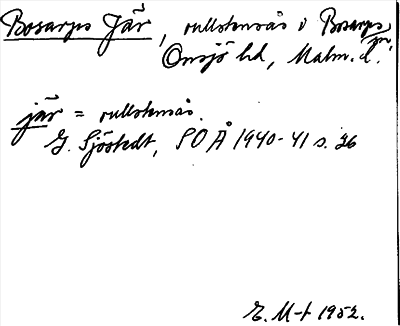 Bosarps Jär, rullstensås i Bosarps sn,
Onsjö hd, Malm. l.
jär = rullstensås.
G. Sjöstedt, SOÅ 1940-41 s. 26
E. M-t 1952.